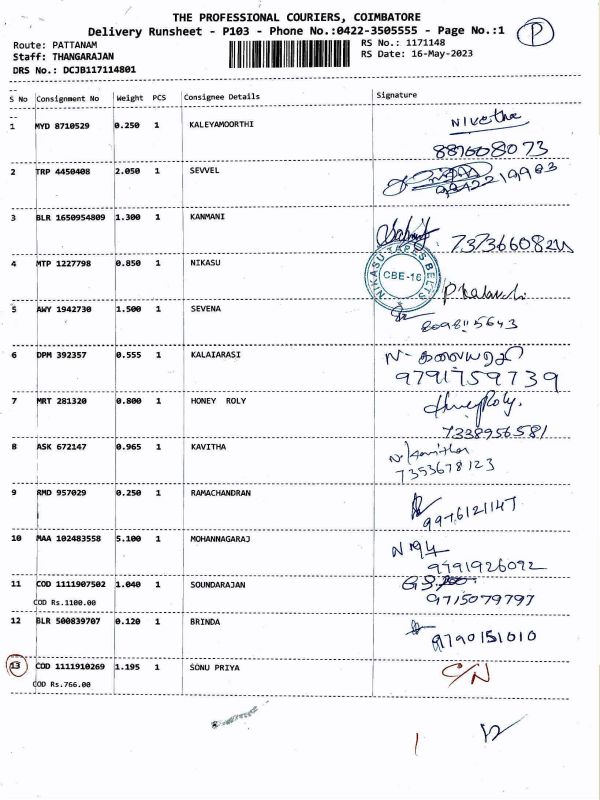 THE PROFESSIONAL COURIERS, COIMBATORE
Delivery Runsheet - P103 - Phone No.:0422-3505555 - Page No.:1 P
Route: PATTANAM RS No.: 1171148
Staff: THANGARAJAN RS Date: 16-May-2023
DRS No.: DCJB117114801
S No Consignment No Weight PCS Consignee Details Signature
1 MYD 8710529 0.250 1 KALEYAMOORTHI Nivetha
2 TRP 4450408 2.050 1 SEVVEL
3 BLR 1650954809 1.300 1 KANMANI
NIKASU TAPES BELTS CBE-16
4 MTP 1227798 0.850 1 NIKASU
5 AWY 1942730 1.500 1 SEVENA
6 DPM 392357 0.555 1 KALAIARASI
9791759739
7 MRT 281320 0.800 1 HONEY ROLY HoneyRoly.
7338956581
8 ASK 672147 0.965 1 KAVITHA N. Kavitha
7353678123
9 RMD 957029 0.250 1 RAMACHANDRAN
9976121147
10 MAA 102483558 5.100 1 MOHANNAGARAJ
9791926092
11 COD 1111907502 1.040 1 SOUNDARAJAN
COD Rs.1100.00 9715079797
12 BLR 500839707 0.120 1 BRINDA 9790151010
13 COD 1111910269 1.195 1 SONU PRIYA C/N
COD Rs.766.00